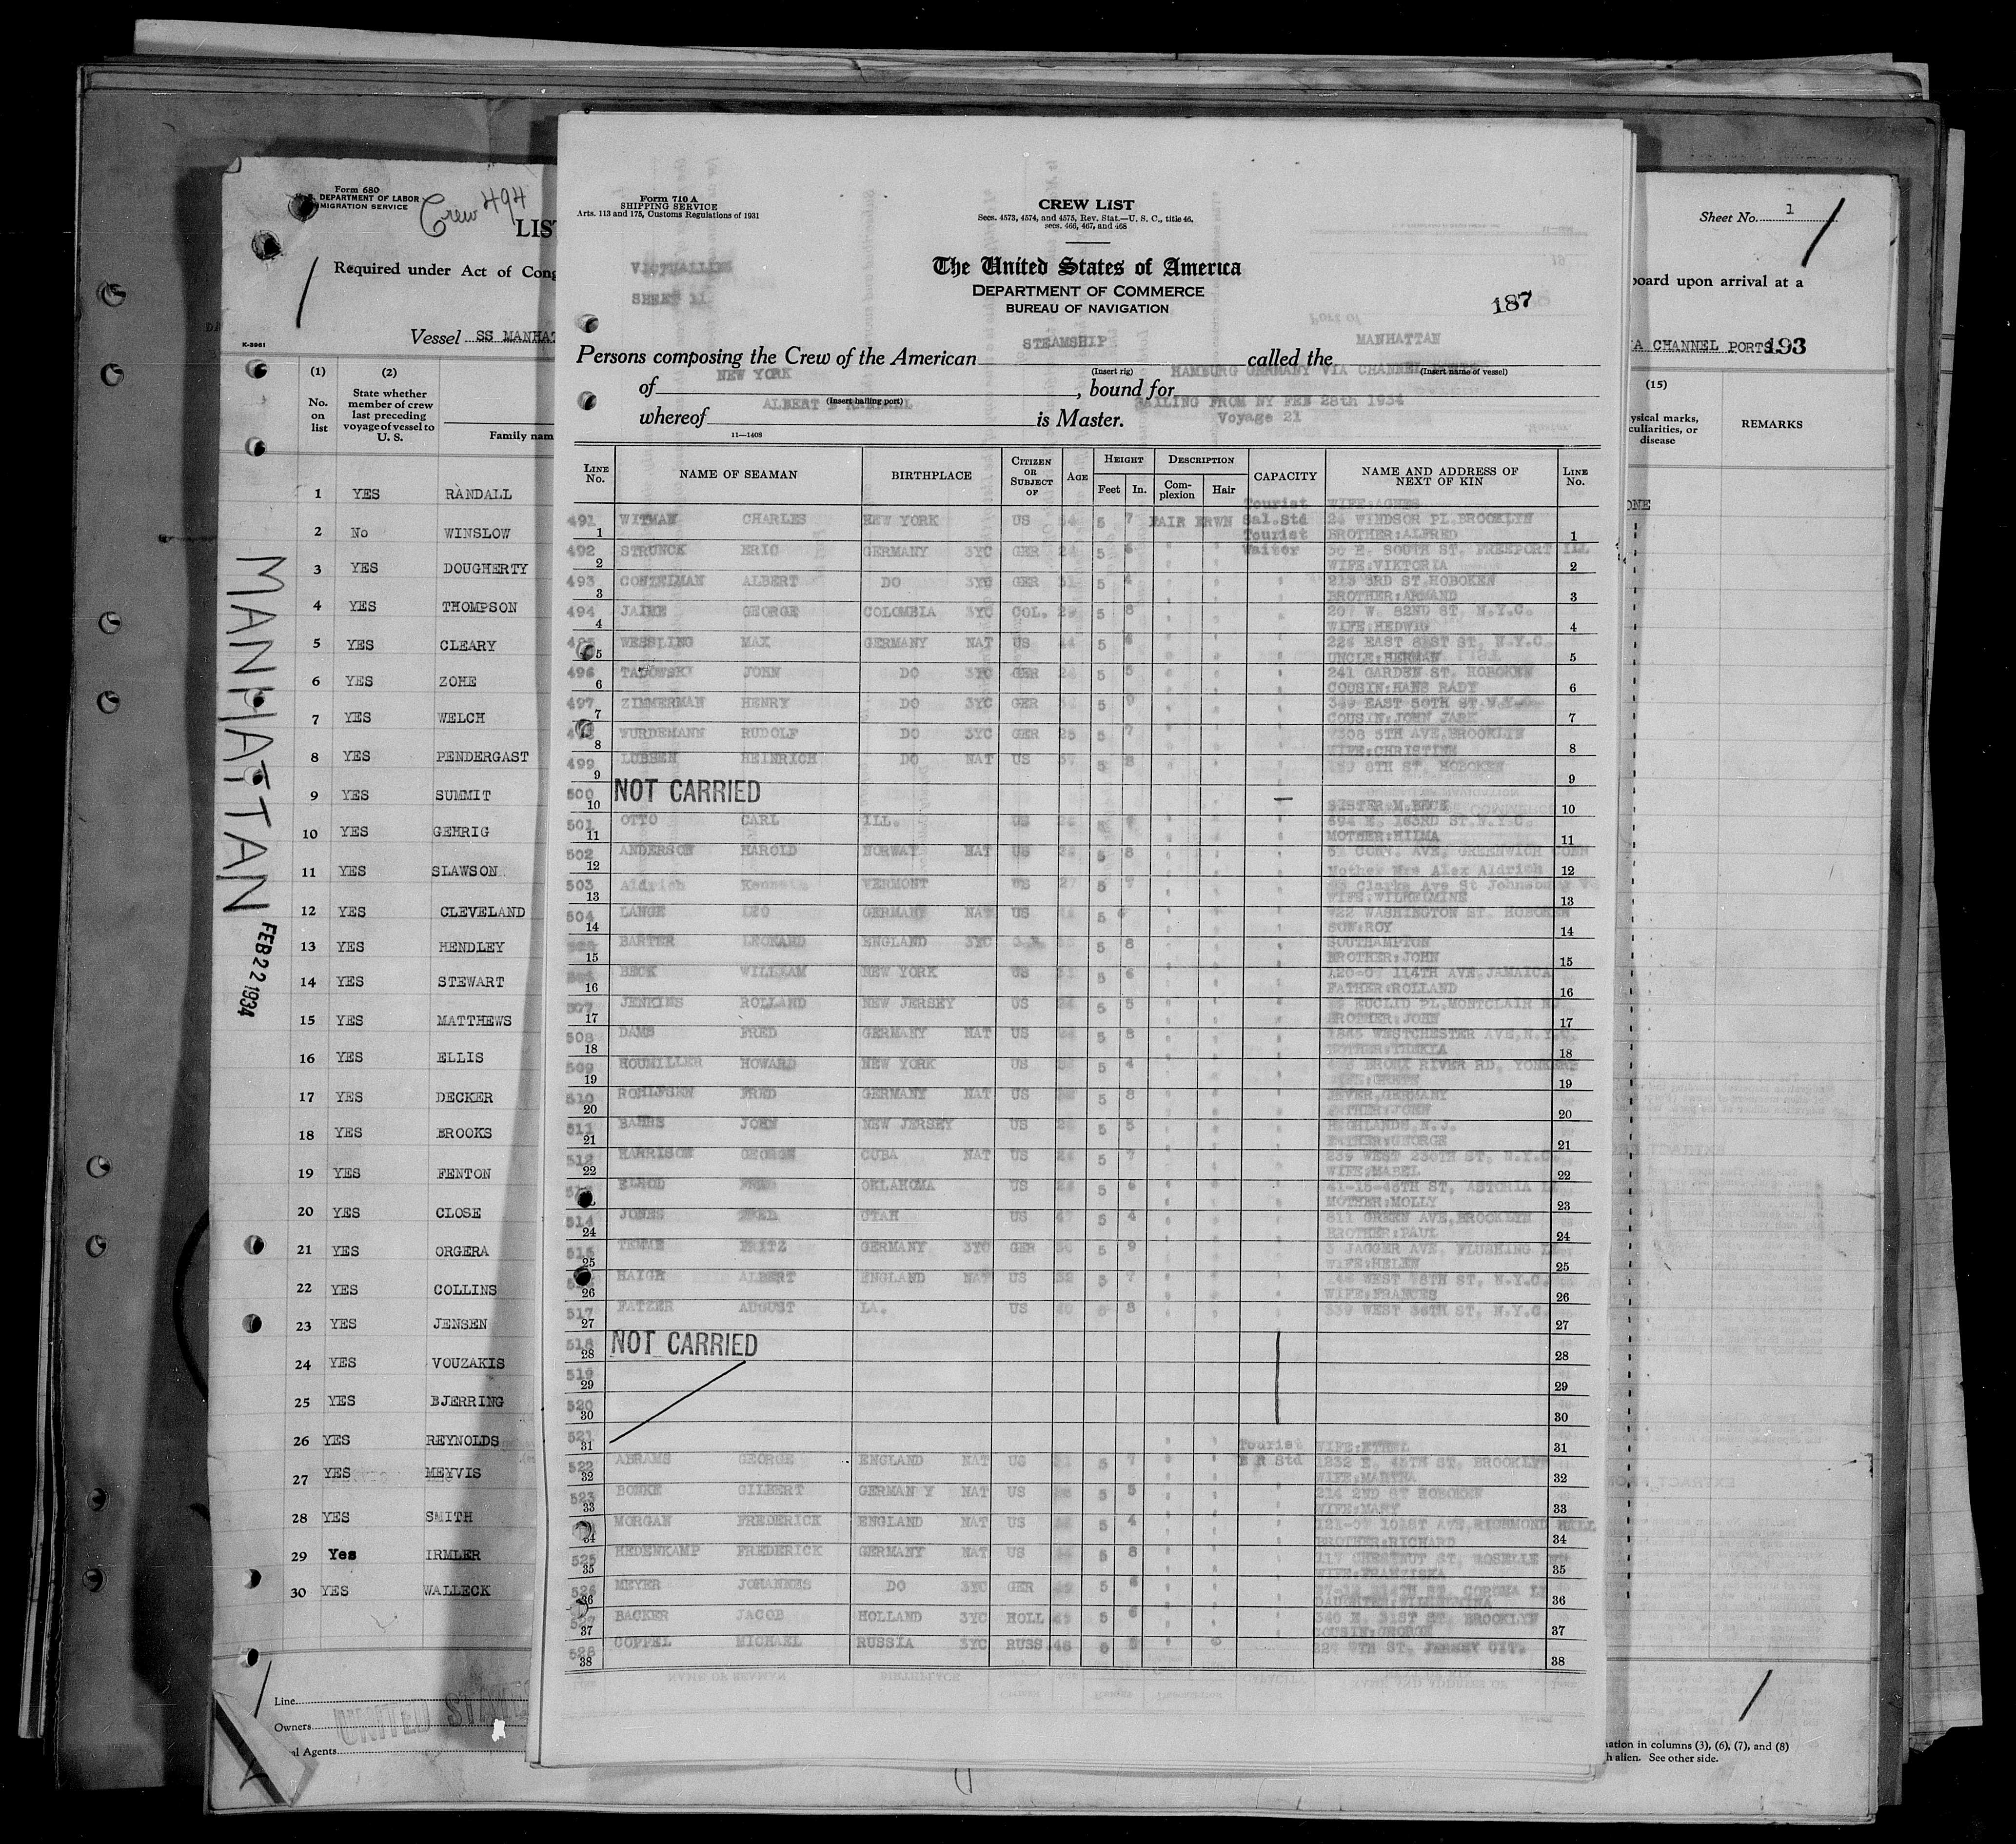 Form 680
DEPARTMENT OF LABOR
IMMIGRATION SERVICE
Crew 494
LIST
Required under Act of Cong
K-2961
Vessel SS MANHAT
(1) (2)
No. on list
State whether member of crew last preceding voyage of vessel to U. S.
Family nam
1 YES RANDALL
2 No WINSLOW
3 YES DOUGHERTY
4 YES THOMPSON
5 YES CLEARY
6 YES ZOHE
7 YES WELCH
8 YES PENDERGAST
9 YES SUMMIT
10 YES GEHRIG
11 YES SLAWSON
12 YES CLEVELAND
13 YES HENDLEY
14 YES STEWART
15 YES MATTHEWS
16 YES ELLIS
17 YES DECKER
18 YES BROOKS
19 YES FENTON
20 YES CLOSE
21 YES ORGERA
22 YES COLLINS
23 YES JENSEN
24 YES VOUZAKIS
25 YES BJERRING
26 YES REYNOLDS
27 YES MEYVIS
28 YES SMITH
29 Yes IRMLER
30 YES WALLECK
MANHATTAN
FEB 22 1934
Line
Owners
al Agents
UNITED STATES
Form 710 A
SHIPPING SERVICE
Arts. 113 and 175, Customs Regulations of 1931
CREW LIST
Secs. 4573, 4574, and 4575, Rev. Stat.—U. S. C., title 46,
secs. 466, 467, and 468
VICTUALLING
SHEET 11
The United States of America
DEPARTMENT OF COMMERCE
BUREAU OF NAVIGATION
187
Persons composing the Crew of the American STEAMSHIP called the MANHATTAN
(Insert rig) (Insert name of vessel)
of NEW YORK, bound for HAMBURG GERMANY VIA CHANNEL
(Insert hailing port)
whereof ALBERT B RANDALL is Master. SAILING FROM NY FEB 28th 1934
Voyage 21
11—1408
LINE No. NAME OF SEAMAN BIRTHPLACE CITIZEN OR SUBJECT OF AGE HEIGHT Feet In. DESCRIPTION Complexion Hair CAPACITY NAME AND ADDRESS OF NEXT OF KIN LINE No.
Tourist WIFE:AGNES
491 1 WITMAN CHARLES NEW YORK US 5 7 FAIR BRWN Sal.Std 24 WINDSOR PL BROOKLYN 1
Tourist BROTHER:ALFRED
492 2 STRUNCK ERIC GERMANY 3YC GER 24 5 6 Waiter E. SOUTH ST, FREEPORT ILL 2
WIFE:VIKTORIA
493 3 CONZELMAN ALBERT DO 3YC GER 31 5 4 213 3RD ST HOBOKEN 3
BROTHER:ARMAND
494 4 JAIME GEORGE COLOMBIA 3YC COL. 29 5 8 207 W. 82ND ST, N.Y.C. 4
WIFE:HEDWIG
5 WESSLING MAX GERMANY NAT US 44 5 6 EAST 81ST ST, N.Y.C. 5
UNCLE:HERMAN
496 6 TADOWSKI JOHN DO 3YC GER 5 5 241 GARDEN ST. HOBOKEN 6
COUSIN:HANS RADY
497 7 ZIMMERMAN HENRY DO 3YC GER 5 9 349 EAST 50TH ST N.Y.C. 7
COUSIN:JOHN JARK
8 WURDEMANN RUDOLF DO 3YC GER 25 5 7 7308 5TH AVE,BROOKLYN 8
WIFE:CHRISTINE
499 9 LUBBEN HEINRICH DO NAT US 37 5 8 8TH ST. HOBOKEN 9
500 10 NOT CARRIED — 10
SISTER:M.BECK
501 11 OTTO CARL ILL. US 5 694 E. 163RD ST.N.Y.C. 11
MOTHER:HILMA
502 12 ANDERSON HAROLD NORWAY NAT US 5 8 CONY. AVE, GREENWICH CONN 12
Mother Mrs Alex Aldrich
503 13 Aldrich Kenneth VERMONT US 27 5 7 Clarks Ave St Johnsbury 13
WIFE:WILHELMINE
504 14 LANGE LEO GERMANY NAT US 5 6 922 WASHINGTON ST. HOBOKEN 14
SON:ROY
15 BARTER LEONARD ENGLAND 3YC 5 8 SOUTHAMPTON 15
BROTHER:JOHN
16 BECK WILLIAM NEW YORK US 5 6 120-07 114TH AVE,JAMAICA 16
FATHER:ROLLAND
507 17 JENKINS ROLLAND NEW JERSEY US 5 5 EUCLID PL.MONTCLAIR NJ 17
BROTHER:JOHN
508 18 DAMS FRED GERMANY NAT US 5 8 WESTCHESTER AVE,N.Y.C. 18
MOTHER:THEKLA
509 19 HOUMILLER HOWARD NEW YORK US 5 4 BRONX RIVER RD, YONKERS 19
510 20 ROHLFSEN FRED GERMANY NAT US 5 8 JEVER,GERMANY 20
FATHER:JOHN
511 21 BAHRS JOHN NEW JERSEY US 5 5 HIGHLANDS,N.J. 21
FATHER:GEORGE
512 22 HARRISON GEORGE CUBA NAT US 5 7 239 WEST 230TH ST, N.Y.C. 22
WIFE:MABEL
ELROD FRED OKLAHOMA US 5 6 41-15-45TH ST, ASTORIA LI 23
MOTHER:MOLLY
514 24 JONES FRED UTAH US 47 5 4 811 GREEN AVE,BROOKLYN 24
BROTHER:PAUL
515 25 TEMME FRITZ GERMANY 3YC GER 30 5 9 3 JAGGER AVE, FLUSHING LI 25
WIFE:HELEN
26 HAIGH ALBERT ENGLAND NAT US 32 5 7 WEST 78TH ST, N.Y.C. 26
WIFE:FRANCES
517 27 FATZER AUGUST LA. US 40 5 8 539 WEST 36TH ST, N.Y.C. 27
518 28 NOT CARRIED 28
519 29 29
520 30 30
521 31 31
Tourist WIFE:ETHEL
522 32 ABRAMS GEORGE ENGLAND NAT US 5 7 B R Std 1232 E. 45TH ST, BROOKLYN 32
WIFE:MARTHA
523 33 BONKE GILBERT GERMANY NAT US 5 5 214 2ND ST HOBOKEN 33
WIFE:MARY
34 MORGAN FREDERICK ENGLAND NAT US 5 4 121-07 101ST AVE,RICHMOND HILL 34
BROTHER:RICHARD
525 35 HEDENKAMP FREDERICK GERMANY NAT US 5 8 117 CHESTNUT ST, ROSELLE 35
WIFE:FRANZISKA
526 36 MEYER JOHANNES DO 3YC GER 5 6 114TH ST, CORONA LI 36
DAUGHTER:WILHELMINA
527 37 BACKER JACOB HOLLAND 3YC HOLL 5 6 340 E. 31ST ST. BROOKLYN 37
COUSIN:GEORGE
528 38 COPPEL MICHAEL RUSSIA 3YC RUSS. 48 5 227 9TH ST, JERSEY CIT. 38
Sheet No. 1
board upon arrival at a
IA CHANNEL PORTS 193
(15)
ysical marks, culiarities, or disease
REMARKS
ONE
ation in columns (3), (6), (7), and (8)
h alien. See other side.